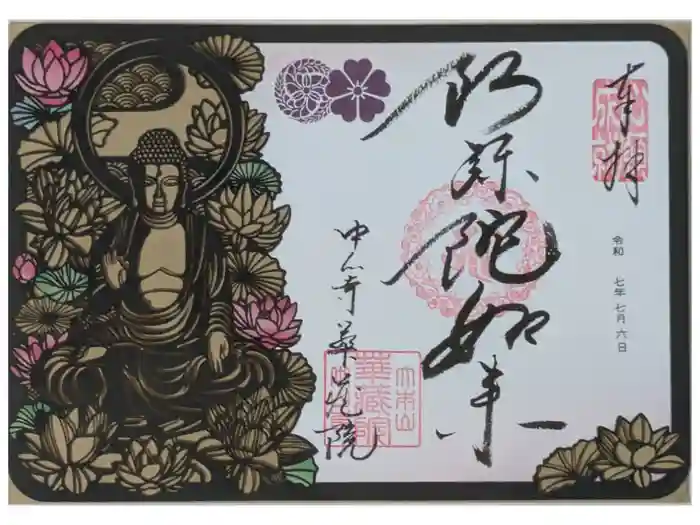 奉拝
令和 七年 七月 六日
阿弥陀如来
中心寺華蔵院
大本山
華蔵院